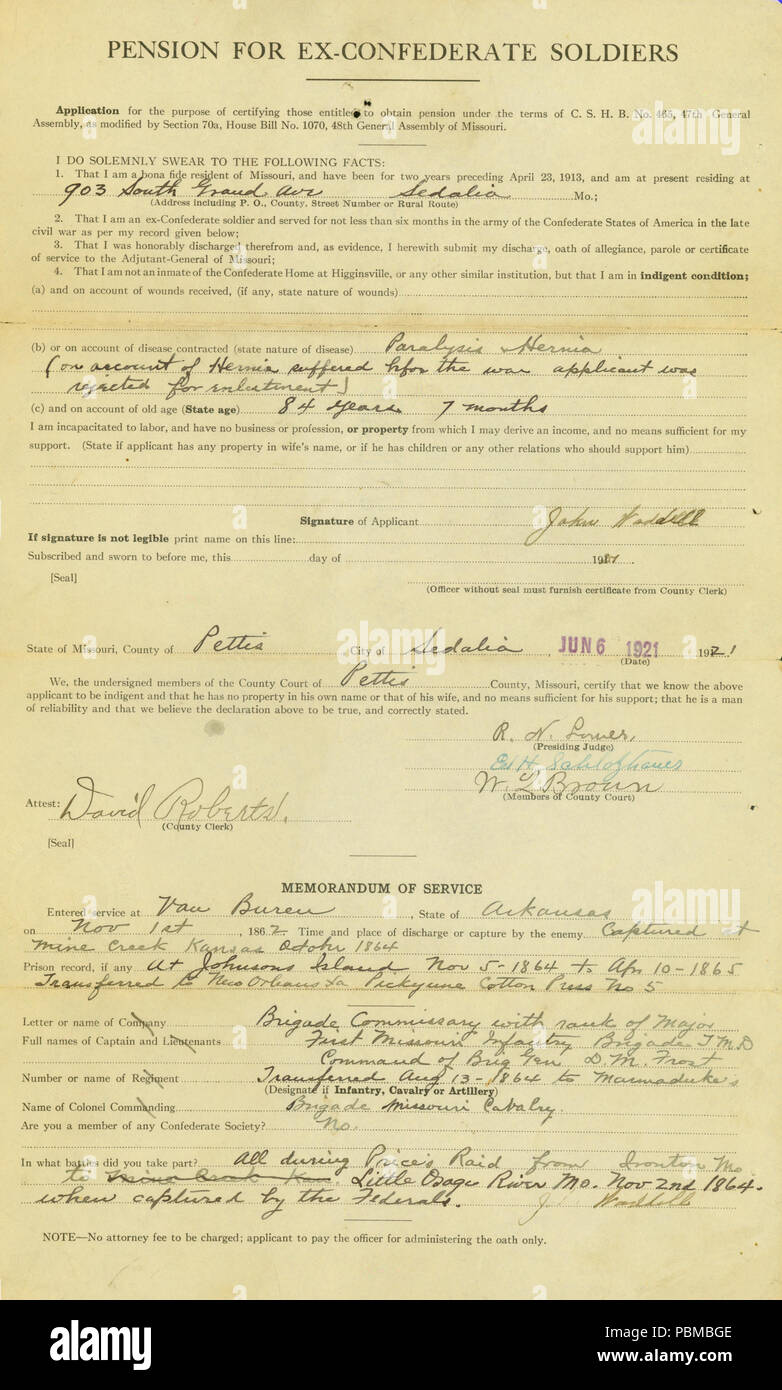 PENSION FOR EX-CONFEDERATE SOLDIERS
Application for the purpose of certifying those entitled to obtain pension under the terms of C. S. H. B. No. 465, 47th General
Assembly, as modified by Section 70a, House Bill No. 1070, 48th General Assembly of Missouri.
I DO SOLEMNLY SWEAR TO THE FOLLOWING FACTS:
1. That I am a bona fide resident of Missouri, and have been for two years preceding April 23, 1913, and am at present residing at
903 South Grand Ave Sedalia Mo.;
(Address including P. O., County. Street Number or Rural Route)
2. That I am an ex-Confederate soldier and served for not less than six months in the army of the Confederate States of America in the late
civil war as per my record given below;
3. That I was honorably discharged therefrom and, as evidence, I herewith submit my discharge, oath of allegiance, parole or certificate
of service to the Adjutant-General of Missouri;
4. That I am not an inmate of the Confederate Home at Higginsville, or any other similar institution, but that I am in indigent condition;
(a) and on account of wounds received, (if any, state nature of wounds)
(b) or on account of disease contracted (state nature of disease) Paralysis & Hernia
(on account of Hernia suffered before the war applicant was
rejected for enlistment)
(c) and on account of old age (State age) 84 years 7 months
I am incapacitated to labor, and have no business or profession, or property from which I may derive an income, and no means sufficient for my
support. (State if applicant has any property in wife's name, or if he has children or any other relations who should support him)
Signature of Applicant John Waddell
If signature is not legible print name on this line:
Subscribed and sworn to before me, this day of 191
[Seal]
(Officer without seal must furnish certificate from County Clerk)
State of Missouri, County of Pettis City of Sedalia, JUN 6 1921 1921
(Date)
We, the undersigned members of the County Court of Pettis County, Missouri, certify that we know the above
applicant to be indigent and that he has no property in his own name or that of his wife, and no means sufficient for his support; that he is a man
of reliability and that we believe the declaration above to be true, and correctly stated.
R. N.
(Presiding Judge)
Ed H.
W. L. Brown
(Members of County Court)
Attest: David Roberts.
(County Clerk)
[Seal]
MEMORANDUM OF SERVICE
Entered service at Van Buren, State of Arkansas
on Nov 1st, 1862 Time and place of discharge or capture by the enemy. Captured at
Mine Creek Kansas 1864
Prison record, if any At Johnsons Island Nov 5-1864 to Apr 10-1865
Transferred to New Orleans La Cotton Press No 5
Letter or name of Company Brigade Commissary with rank of Major
Full names of Captain and Lieutenants First Missouri Infantry Brigade T M D
Command of Brig Gen D. M. Frost
Number or name of Regiment Transferred Aug 13-1864 to Marmaduke's
(Designate if Infantry, Cavalry or Artillery)
Name of Colonel Commanding Brigade Missouri Cavalry.
Are you a member of any Confederate Society? No.
In what battles did you take part? All during Price's Raid from Ironton Mo
to Little Osage River Mo. Nov 2nd 1864.
when captured by the Federals. J. Waddell
NOTE—No attorney fee to be charged; applicant to pay the officer for administering the oath only.
alamy
alamy
Image ID: PBMBGE
www.alamy.com